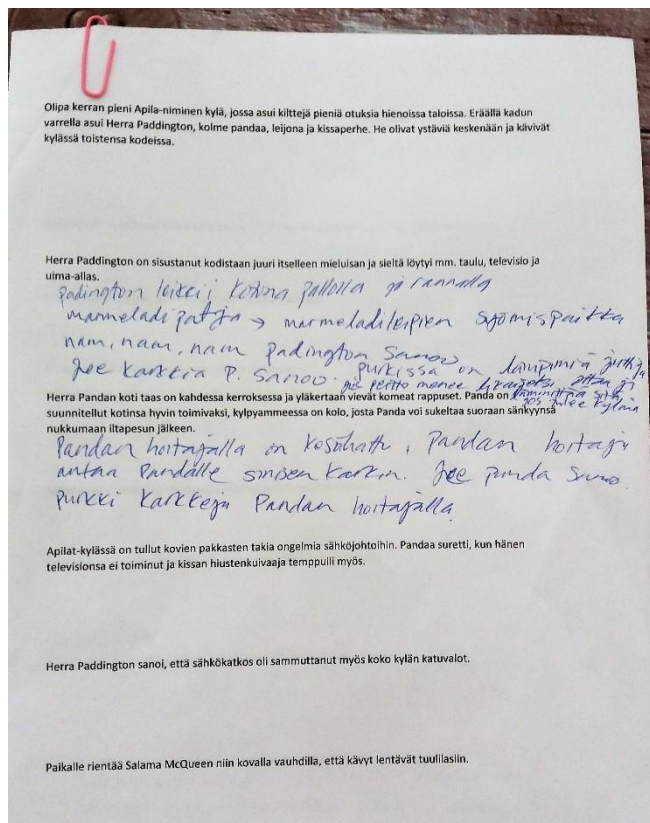 Olipa kerran pieni Apila-niminen kylä, jossa asui kilttejä pieniä otuksia hienoissa taloissa. Eräällä kadun
varrella asui Herra Paddington, kolme pandaa, leijona ja kissaperhe. He olivat ystäviä keskenään ja kävivät
kylässä toistensa kodeissa.
Herra Paddington on sisustanut kodistaan juuri itselleen mieluisan ja sieltä löytyi mm. taulu, televisio ja
uima-allas.
padington leikkii kotona pallolla ja rannalla
marmeladipatja → marmeladileipien syömispaikka
nam, nam, nam padington sanoo
Jee karkkia P. sanoo. purkissa on lämpimiä juttuja
jos peitto menee likaiseksi ottaa ja
Herra Pandan koti taas on kahdessa kerroksessa ja yläkertaan vievät komeat rappuset. Panda on lämmittää sitä
suunnitellut kotinsa hyvin toimivaksi, kylpyammeessa on kolo, josta Panda voi sukeltaa suoraan sänkyynsä jos tulee kylmä
nukkumaan iltapesun jälkeen.
Pandan hoitajalla on kesähattu. Pandan hoitaja
antaa Pandalle sinisen karkin. Jee panda sanoo.
purkki karkkeja Pandan hoitajalla
Apilat-kylässä on tullut kovien pakkasten takia ongelmia sähköjohtoihin. Pandaa suretti, kun hänen
televisionsa ei toiminut ja kissan hiustenkuivaaja temppuili myös.
Herra Paddington sanoi, että sähkökatkos oli sammuttanut myös koko kylän katuvalot.
Paikalle rientää Salama McQueen niin kovalla vauhdilla, että kävyt lentävät tuulilasiin.